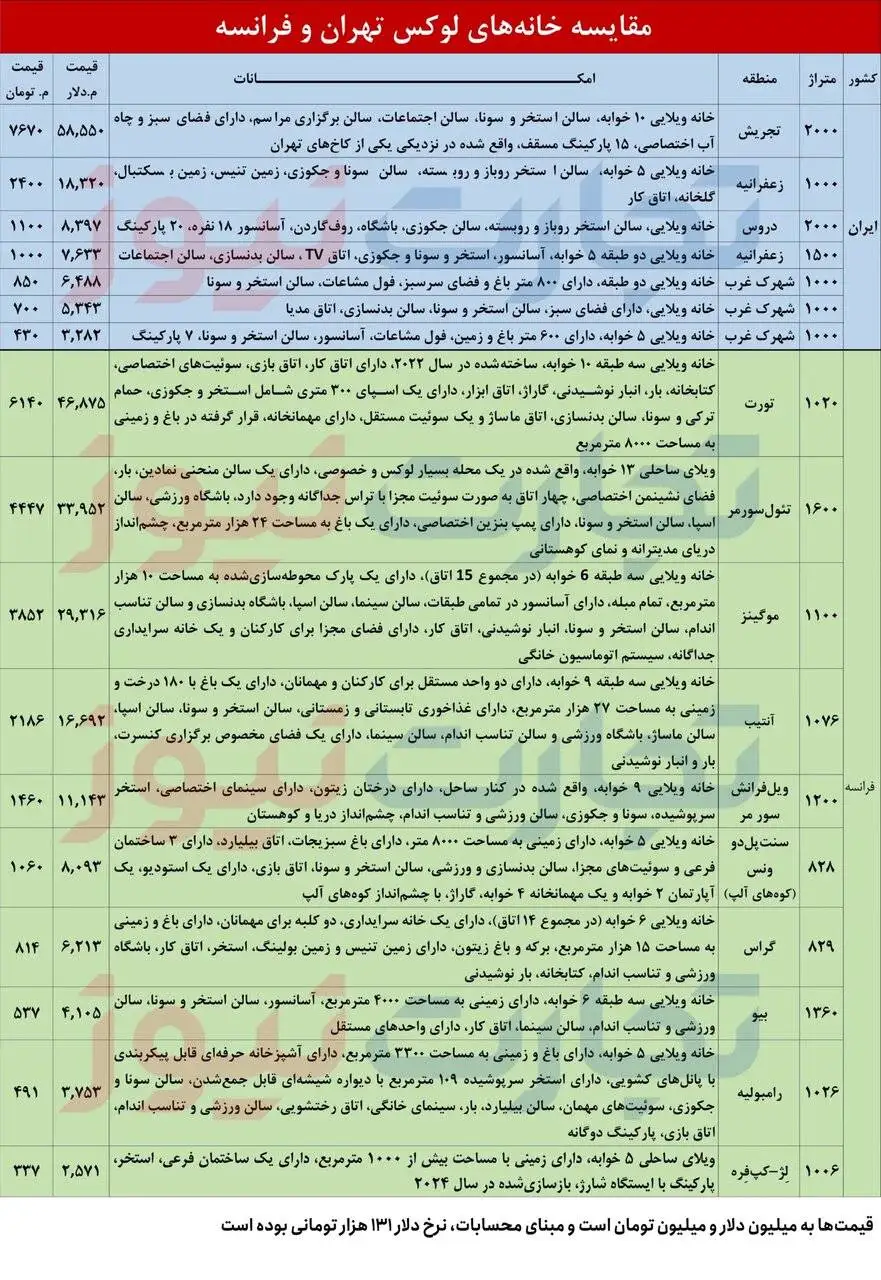 مقایسه خانه‌های لوکس تهران و فرانسه
کشور متراژ منطقه امکـــانات قیمت م.دلار قیمت م. تومان
ایران
۲۰۰۰ تجریش خانه ویلایی ۱۰ خوابه، سالن استخر و سونا، سالن اجتماعات، سالن برگزاری مراسم، دارای فضای سبز و چاه
آب اختصاصی، ۱۵ پارکینگ مسقف، واقع شده در نزدیکی یکی از کاخ‌های تهران ۵۸,۵۵۰ ۷۶۷۰
۱۰۰۰ زعفرانیه خانه ویلایی ۵ خوابه، سالن استخر روباز و روبسته، سالن سونا و جکوزی، زمین تنیس، زمین بسکتبال،
گلخانه، اتاق کار ۱۸,۳۲۰ ۲۴۰۰
۲۰۰۰ دروس خانه ویلایی، سالن استخر روباز و روبسته، سالن جکوزی، باشگاه، روف‌گاردن، آسانسور ۱۸ نفره، ۲۰ پارکینگ ۸,۳۹۷ ۱۱۰۰
۱۵۰۰ زعفرانیه خانه ویلایی دو طبقه ۵ خوابه، آسانسور، استخر و سونا و جکوزی، اتاق TV ، سالن بدنسازی، سالن اجتماعات ۷,۶۳۳ ۱۰۰۰
۱۰۰۰ شهرک غرب خانه ویلایی دو طبقه، دارای ۸۰۰ متر باغ و فضای سرسبز، فول مشاعات، سالن استخر و سونا ۶,۴۸۸ ۸۵۰
۱۰۰۰ شهرک غرب خانه ویلایی، دارای فضای سبز، سالن استخر و سونا، سالن بدنسازی، اتاق مدیا ۵,۳۴۳ ۷۰۰
۱۰۰۰ شهرک غرب خانه ویلایی ۵ خوابه، دارای ۶۰۰ متر باغ و زمین، فول مشاعات، آسانسور، سالن استخر و سونا، ۷ پارکینگ ۳,۲۸۲ ۴۳۰
فرانسه
۱۰۲۰ تورت خانه ویلایی سه طبقه ۱۰ خوابه، ساخته‌شده در سال ۲۰۲۲، دارای اتاق کار، اتاق بازی، سوئیت‌های اختصاصی،
کتابخانه، بار، انبار نوشیدنی، گاراژ، اتاق ابزار، دارای یک اسپای ۳۰۰ متری شامل استخر و جکوزی، حمام
ترکی و سونا، سالن بدنسازی، اتاق ماساژ و یک سوئیت مستقل، دارای مهمانخانه، قرار گرفته در باغ و زمینی
به مساحت ۸۰۰۰ مترمربع ۴۶,۸۷۵ ۶۱۴۰
۱۶۰۰ تئول‌سورمر ویلای ساحلی ۱۳ خوابه، واقع شده در یک محله بسیار لوکس و خصوصی، دارای یک سالن منحنی نمادین، بار،
فضای نشیمن اختصاصی، چهار اتاق به صورت سوئیت مجزا با تراس جداگانه وجود دارد، باشگاه ورزشی، سالن
اسپا، سالن استخر و سونا، دارای پمپ بنزین اختصاصی، دارای یک باغ به مساحت ۲۴ هزار مترمربع، چشم‌انداز
دریای مدیترانه و نمای کوهستانی ۳۳,۹۵۲ ۴۴۴۷
۱۱۰۰ موگینز خانه ویلایی سه طبقه 6 خوابه (در مجموع 15 اتاق)، دارای یک پارک محوطه‌سازی‌شده به مساحت ۱۰ هزار
مترمربع، تمام مبله، دارای آسانسور در تمامی طبقات، سالن سینما، سالن اسپا، باشگاه بدنسازی و سالن تناسب
اندام، سالن استخر و سونا، انبار نوشیدنی، اتاق کار، دارای فضای مجزا برای کارکنان و یک خانه سرایداری
جداگانه، سیستم اتوماسیون خانگی ۲۹,۳۱۶ ۳۸۵۲
۱۰۷۶ آنتیب خانه ویلایی سه طبقه ۹ خوابه، دارای دو واحد مستقل برای کارکنان و مهمانان، دارای یک باغ با ۱۸۰ درخت و
زمینی به مساحت ۲۷ هزار مترمربع، دارای غذاخوری تابستانی و زمستانی، سالن استخر و سونا، سالن اسپا،
سالن ماساژ، باشگاه ورزشی و سالن تناسب اندام، سالن سینما، دارای یک فضای مخصوص برگزاری کنسرت،
بار و انبار نوشیدنی ۱۶,۶۹۲ ۲۱۸۶
۱۲۰۰ ویل‌فرانش سور مر خانه ویلایی ۹ خوابه، واقع شده در کنار ساحل، دارای درختان زیتون، دارای سینمای اختصاصی، استخر
سرپوشیده، سونا و جکوزی، سالن ورزشی و تناسب اندام، چشم‌انداز دریا و کوهستان ۱۱,۱۴۳ ۱۴۶۰
۸۲۸ سنت‌پل‌دو ونس (کوه‌های آلپ) خانه ویلایی ۵ خوابه، دارای زمینی به مساحت ۸۰۰۰ متر، دارای باغ سبزیجات، اتاق بیلیارد، دارای ۳ ساختمان
فرعی و سوئیت‌های مجزا، سالن بدنسازی و ورزشی، سالن استخر و سونا، اتاق بازی، دارای یک استودیو، یک
آپارتمان ۲ خوابه و یک مهمانخانه ۴ خوابه، گاراژ، با چشم‌انداز کوه‌های آلپ ۸,۰۹۳ ۱۰۶۰
۸۲۹ گراس خانه ویلایی ۶ خوابه (در مجموع ۱۴ اتاق)، دارای یک خانه سرایداری، دو کلبه برای مهمانان، دارای باغ و زمینی
به مساحت ۱۵ هزار مترمربع، برکه و باغ زیتون، دارای زمین تنیس و زمین بولینگ، استخر، اتاق کار، باشگاه
ورزشی و تناسب اندام، کتابخانه، بار نوشیدنی ۶,۲۱۳ ۸۱۴
۱۳۶۰ بیو خانه ویلایی سه طبقه ۶ خوابه، دارای زمینی به مساحت ۴۰۰۰ مترمربع، آسانسور، سالن استخر و سونا، سالن
ورزشی و تناسب اندام، سالن سینما، اتاق کار، دارای واحدهای مستقل ۴,۱۰۵ ۵۳۷
۱۰۲۶ رامبولیه خانه ویلایی ۵ خوابه، دارای باغ و زمینی به مساحت ۳۳۰۰ مترمربع، دارای آشپزخانه حرفه‌ای قابل پیکربندی
با پانل‌های کشویی، دارای استخر سرپوشیده ۱۰۹ مترمربع با دیواره شیشه‌ای قابل جمع‌شدن، سالن سونا و
جکوزی، سوئیت‌های مهمان، سالن بیلیارد، بار، سینمای خانگی، اتاق رختشویی، سالن ورزشی و تناسب اندام،
اتاق بازی، پارکینگ دوگانه ۳,۷۵۳ ۴۹۱
۱۰۰۶ لِژ-کپ‌فِره ویلای ساحلی ۵ خوابه، دارای زمینی با مساحت بیش از ۱۰۰۰ مترمربع، دارای یک ساختمان فرعی، استخر،
پارکینگ با ایستگاه شارژ، بازسازی‌شده در سال ۲۰۲۴ ۲,۵۷۱ ۳۳۷
قیمت‌ها به میلیون دلار و میلیون تومان است و مبنای محسابات، نرخ دلار ۱۳۱ هزار تومانی بوده است
تجارت نیوز
تجارت نیوز
تجارت نیوز
تجارت نیوز